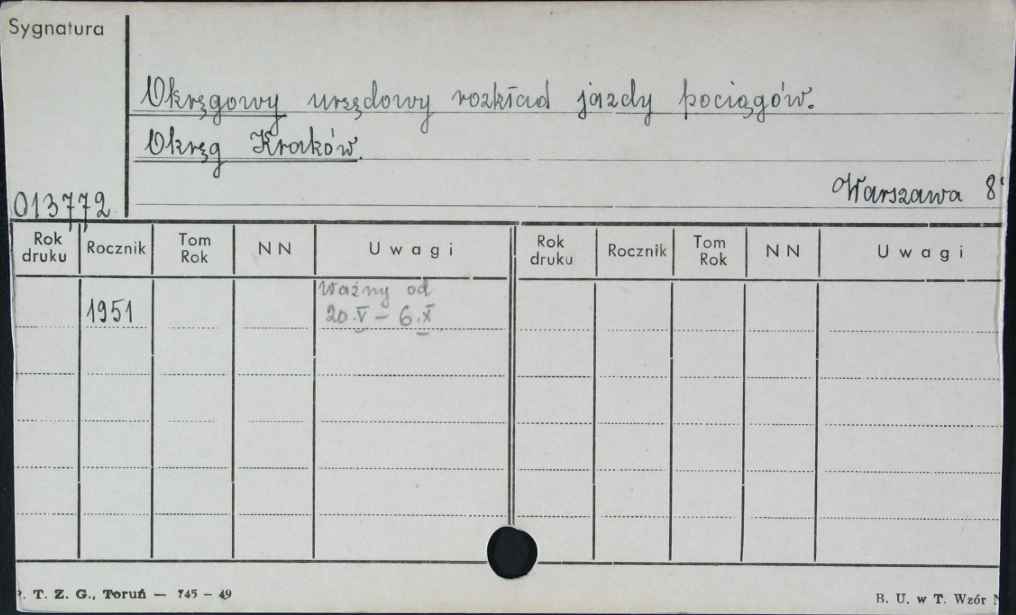 Sygnatura
Okręgowy urzędowy rozkład jazdy pociągów.
Okręg Kraków.
013772
Warszawa 8°
Rok druku Rocznik Tom Rok NN Uwagi Rok druku Rocznik Tom Rok NN Uwagi
1951 Ważny od
20.V – 6.X
. T. Z. G., Toruń — 745 – 49
B. U. w T. Wzór